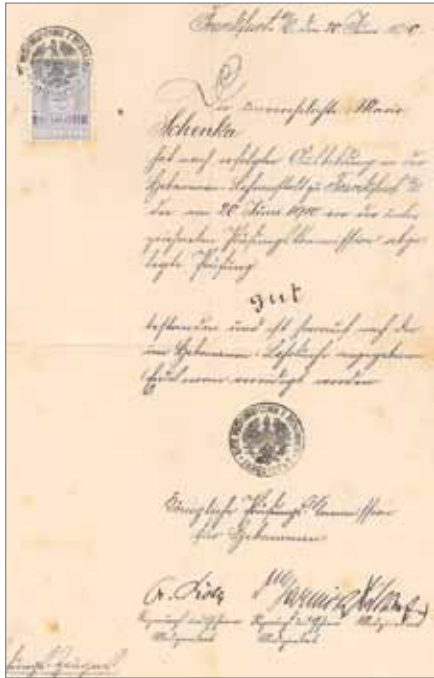 Frankfurt a/O den 20. Juni 1910.
Die unverehelichte Marie
Schenka
hat nach erfolgter Ausbildung in der
Hebammen-Lehranstalt zu Frankfurt a/O
die am 20 Juni 1910 vor der unter-
zeichneten Prüfungskommission abge-
legte Prüfung
gut
bestanden und ist hierauf nach der
im Hebammen-Lehrbuche angegebenen
Eidesnorm vereidigt worden
Königliche Prüfungs-Kommission
für Hebammen
Medizinalrat